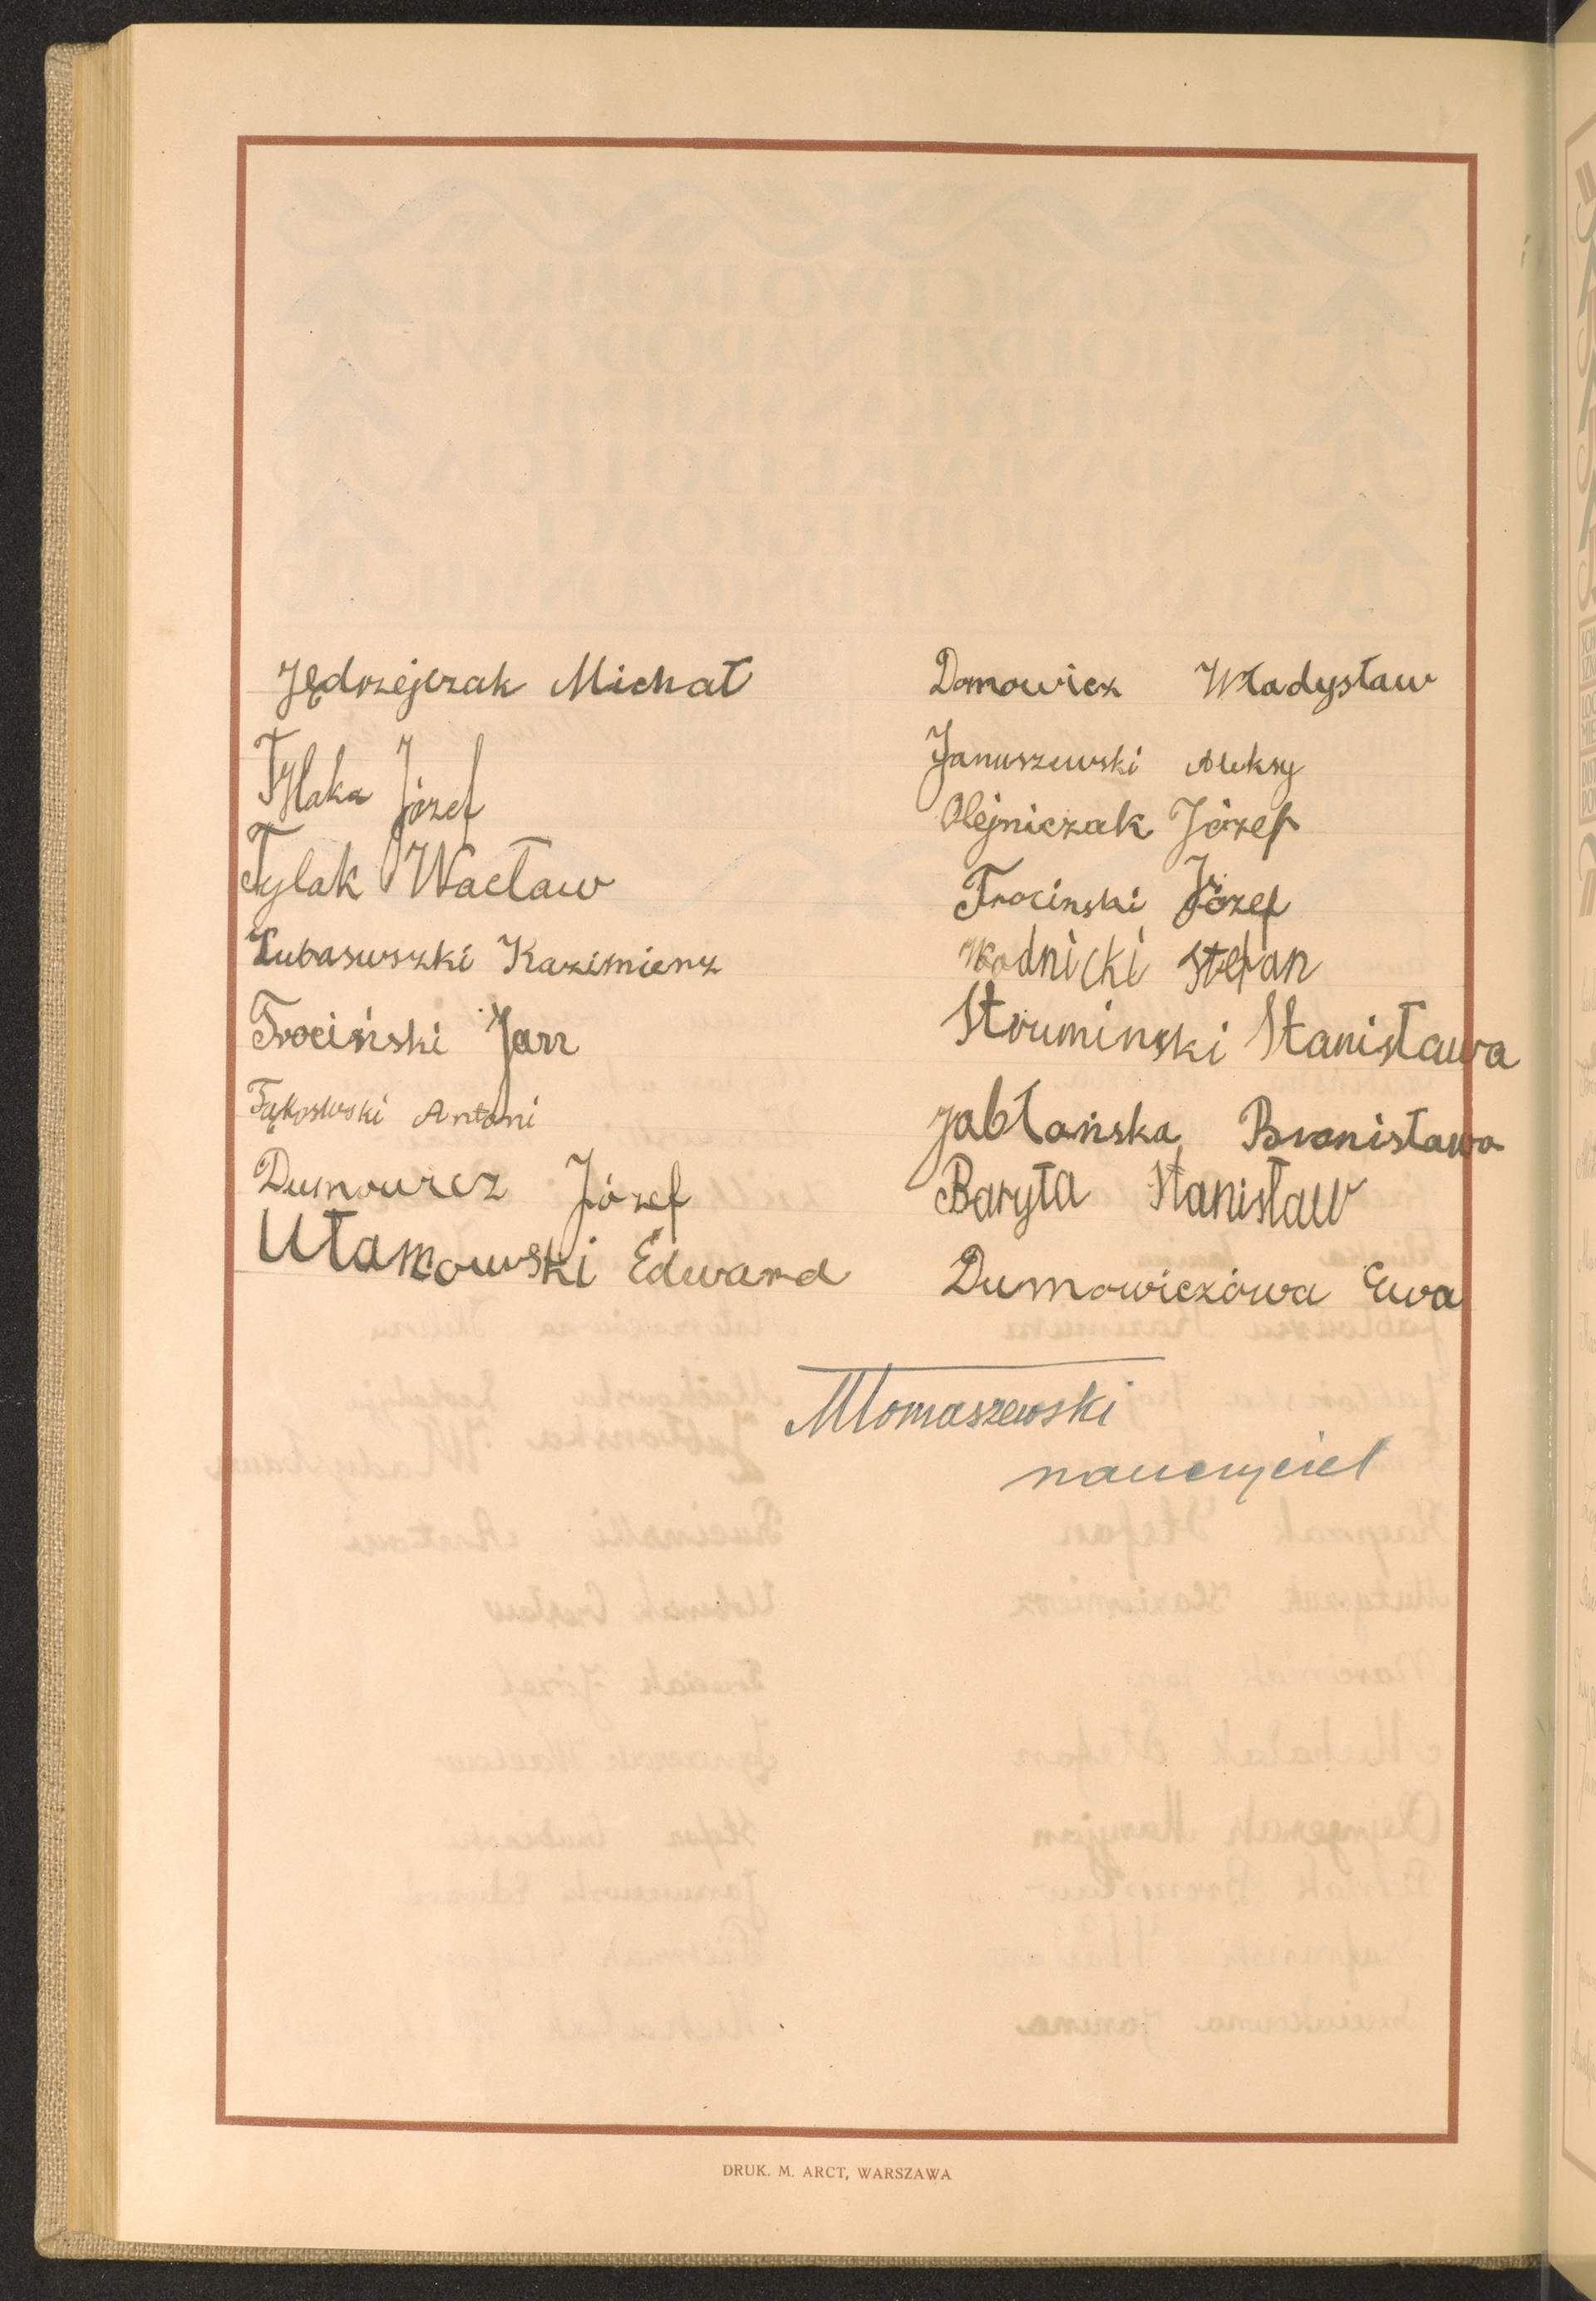 Jędrzejczak Michał
Tylaka Józef
Tylak Wacław
Lubasuszki Kazimierz
Trociński Jan
Antoni
Dumowicz Józef
Ułamowski Edward
Domowicz Władysław
Januszewski Aleksy
Olejniczak Józef
Trocinski Józef
Wodnicki Stefan
Struminski Stanisława
Jabłońska Bronisława
Baryła Stanisław
Dumowiczówa Ewa
MTomaszewski
nauczyciel
DRUK. M. ARCT, WARSZAWA